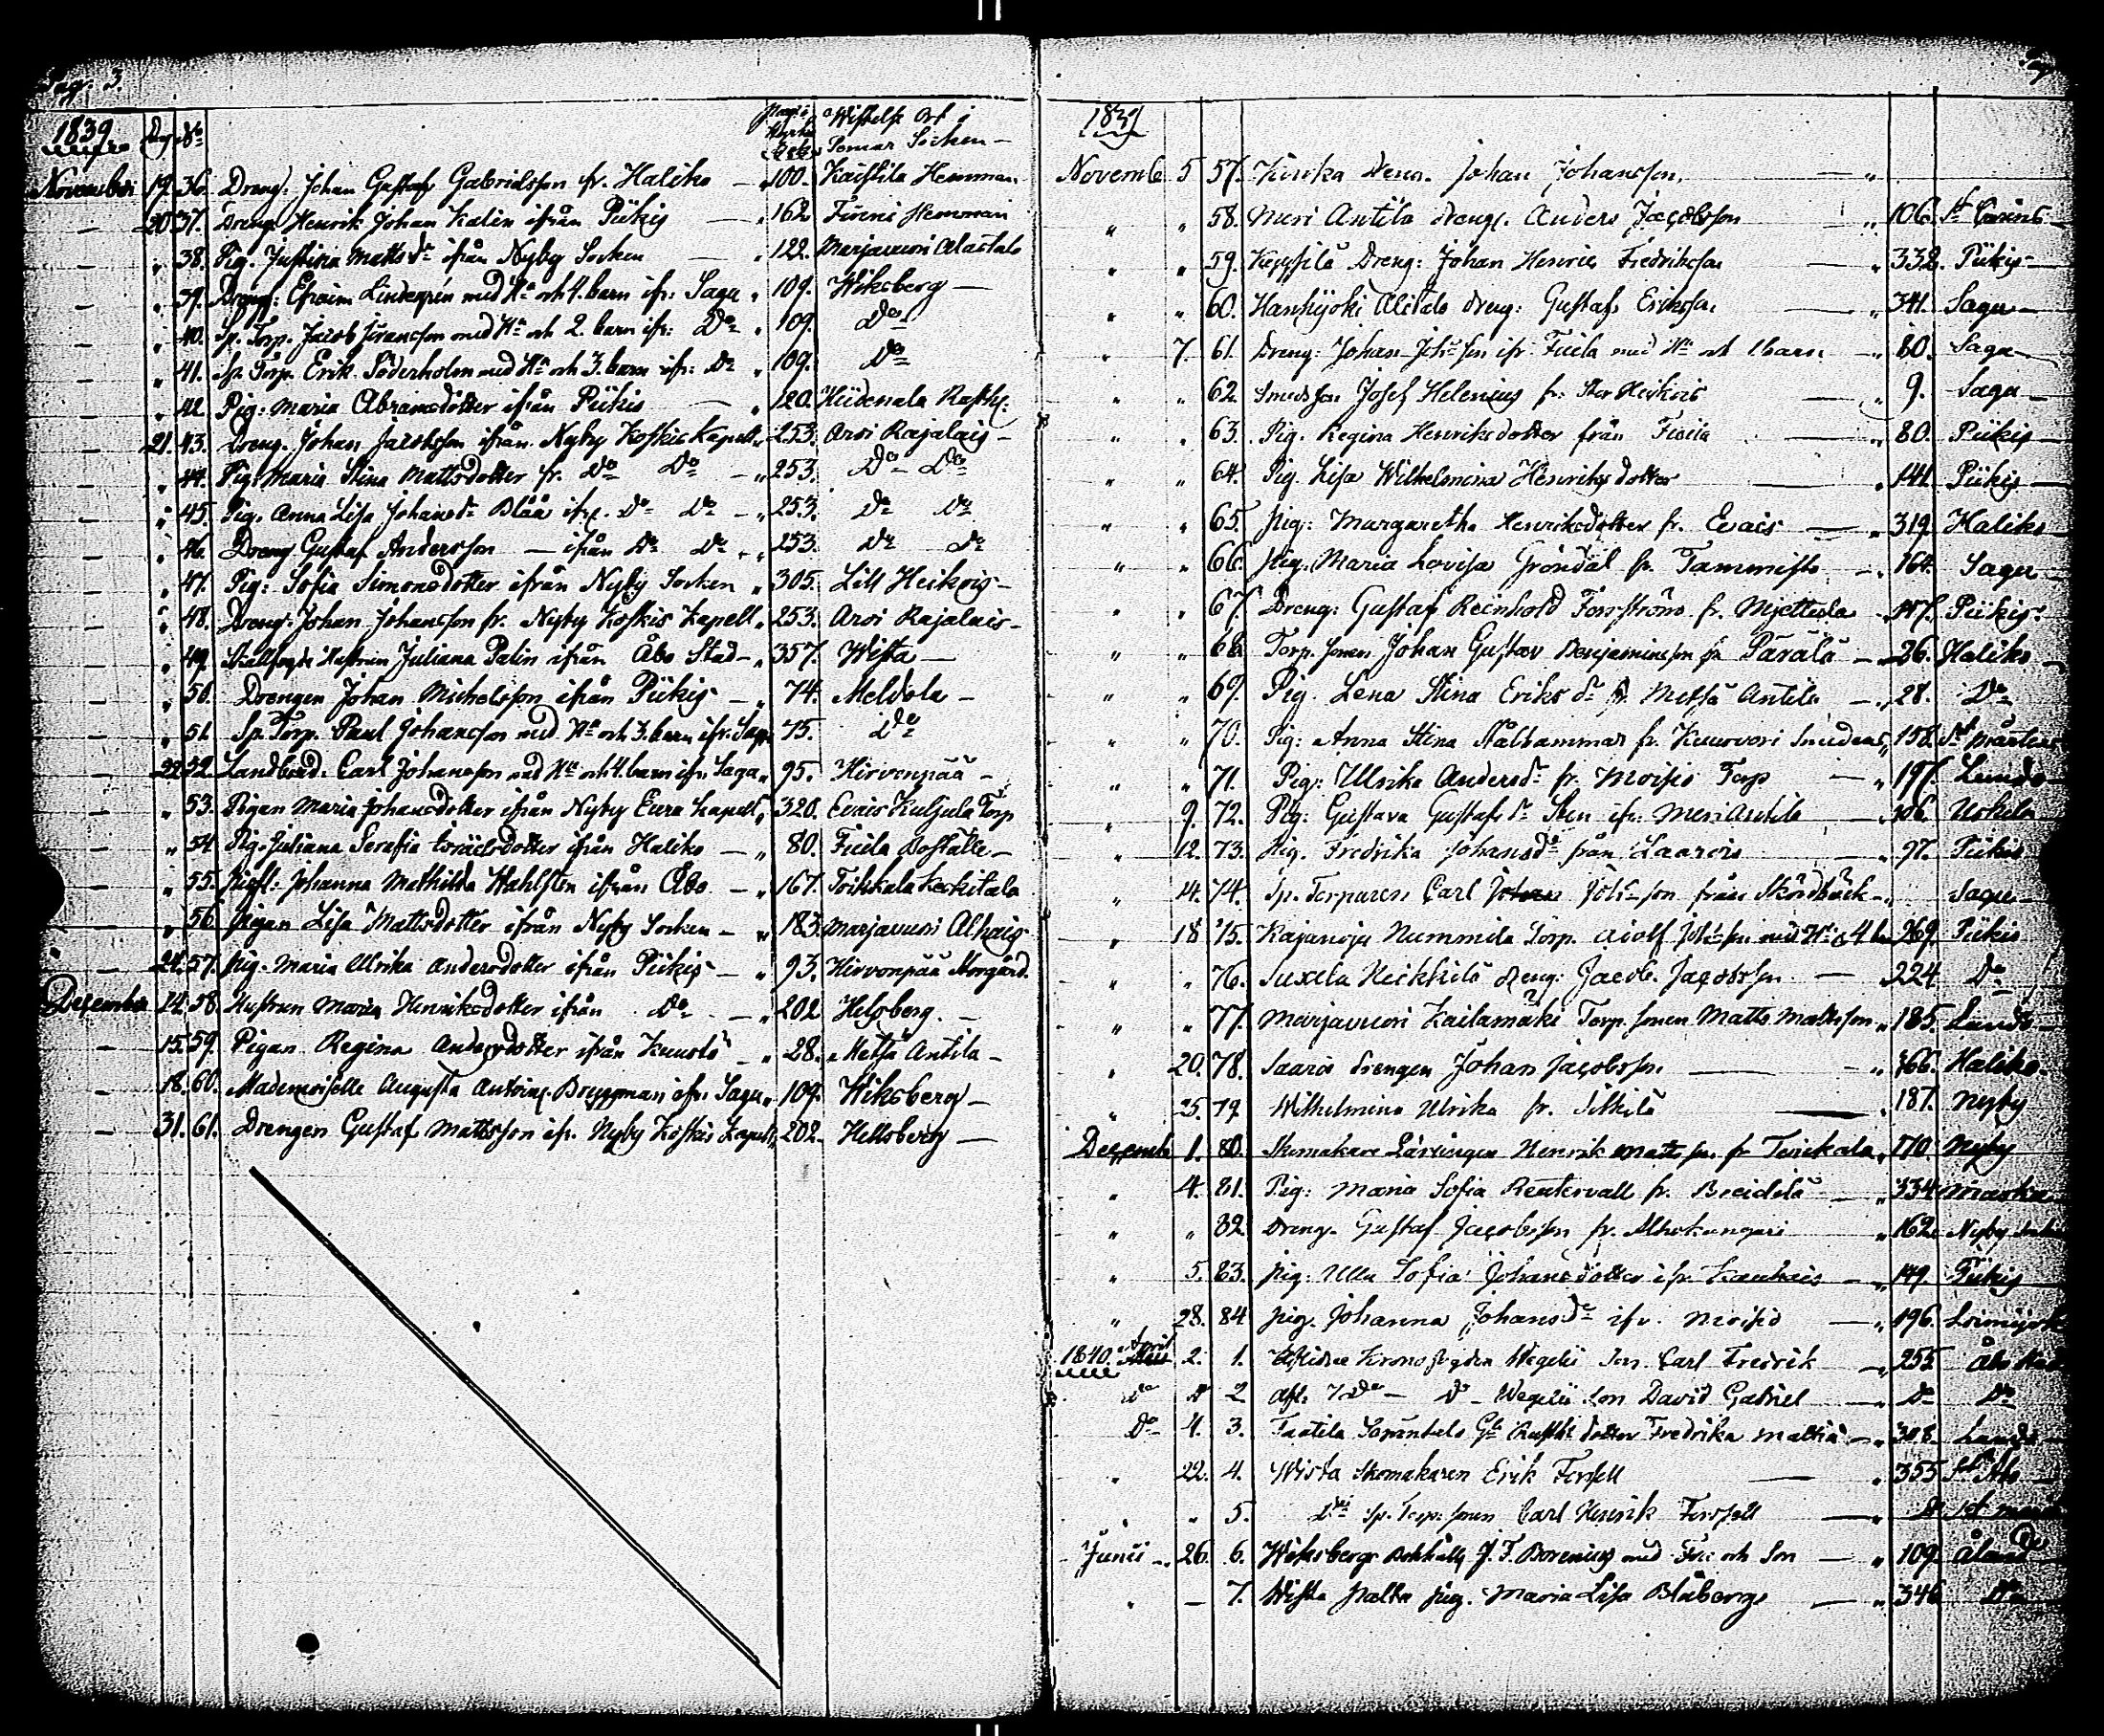 Pag. 3.
1839 Dag No Pag. i Kyrko Boken Wistelse Ort i Pemar Socken
November 19. 36. Dreng: Johan Gustaf Gabrielsson fr. Haliko 100. Kaistila Hemman
20. 37. Dreng: Henrik Johan Kalin ifrån Pikis 162 Hemman
38. Pig. Justina Matts dr ifrån Nyby Socken 122. Marjavuori Alastalo
39. Dreng: Efraim Lindegrén med Hu och 4. barn ifr: Sagu 109. Wiksberg
40. Sp. Torp. Jacob med Hu och 2. barn ifr: Do 109. Do
41. Sp. Torp. Erik Söderholm med Hu och 3. barn ifr: Do 109. Do
42. Pig: Maria Abramsdotter ifrån Pikis 120. Heidenala
21. 43. Dreng. Johan Jacobsson ifrån Nyby Koskis Kapell 253. Arvi Rajalais
44. Pig. Maria Stina Mattsdotter fr. Do Do 253. Do Do
45. Pig. Anna Lisa Johansdr Blåå ifr. Do Do 253. Do Do
46. Dreng Gustaf Andersson ifrån Do Do 253. Do Do
47. Pig: Sofia Simonsdotter ifrån Nyby Socken 305. Lill Heikois
48. Dreng. Johan Johansson fr. Nyby Koskis Kapell 253. Arvi Rajalais
49. Hustrun Juliana Palin ifrån Åbo Stad 357. Wista
50. Drengen Johan Michelsson ifrån Pikis 74. Meldola
51. Sp. Torp. Paul Johansson med Hu och 3. barn ifr. Sagu 75. Do
22. 52. Landbond. Carl Johansson med Hu och 4. barn ifr. Sagu 95. Hirvonpää
53. Pigan Maria Johansdotter ifrån Nyby Eura Kapell 320. Evais Kuljula Torp
54. Pig. Juliana Serafia Israelsdotter ifrån Haliko 80. Fiila Boställe
55. Johanna Mathilda Wahlsten ifrån Åbo 167. Toikkala Keskitalo
56. Pigan Lisa Mattsdotter ifrån Nyby Socken 183. Marjavuori Alhais
24. 57. Pig. Maria Ulrika Andersdotter ifrån Pikis 93. Hirvonpää Storgård
December 14. 58. Hustrun Maria Henriksdotter ifrån Do 202 Helsberg.
15. 59. Pigan Regina Andersdotter ifrån Kuusto 28. Metsä Antila
18. 60. Mademoiselle Augusta Bryggman ifr. Sagu 109. Wiksberg
31. 61. Drengen Gustaf Mattsson ifr. Nyby Koskis Kapell 202. Hellsberg
1839
Novemb 5 57. Dren. Johan Johansson
58. Meri Antila dreng. Anders Jacobsson 106. St Carins
59. Dreng: Johan Henric Fredriksson 338. Pikis
60. Hankijoki Alitalo dreng: Gustaf Eriksson 341. Sagu
7. 61. Dreng: Johan Joh:son ifr. Fiila med Hu och 1 barn 80. Sagu
62. Smedsson Josef Helenius fr. Stor Heikois 9. Sagu
63. Pig. Regina Henriksdotter från Fiila 80. Pikis
64. Pig. Lisa Wilhelmina Henriksdotter 141. Pikis
65. Pig: Margaretha Henriksdotter fr. Evais 319. Haliko
66. Pig. Maria Lovisa Gröndal fr. Tammisto 164. Sagu
67. Dreng: Gustaf Reinhold Forsström fr. 147. Pikis
68. Torp. sonen Johan Gustav Benjaminsson fr Pärälä 26. Haliko
69. Pig. Lena Stina Eriks dr fr. Metsä Antila 28. Do
70. Pig: Anna Stina Stålhammar fr. Kuuovori 158. St Mårtens
71. Pig. Ulrika Andersdr fr. Moisio Torp 197. Lundo
9. 72. Pig: Gustava Gustafsdr Sten ifr. Meri Antila 106. Uskela
12. 73. Pig. Fredrika Johansdr från Saarois 97. Pikis
14. 74. Sp. Torparen Carl Joh:son från Skördbäck Sagu
18 75. Kajanoja Nummila Torp. Adolf Joh:son med Hu & 4 b 269. Pikis
76. Suxela Heikkilä dreng: Jacob Jacobsson 224 Do
77. Marjavuori Kailamäki Torp. sonen Matts Mattsson 185. Lundo
20. 78. Saaris drengen Johan Jacobsson 366. Haliko
25. 79 Wilhelmina Ulrika fr. 187. Nyby
Decemb 1. 80. Skomakare Lärlingen Henrik Mattsson fr 170. Nyby
4. 81. Pig: Maria Sofia Reutervall fr. 334 Masku
82. Dreng. Gustaf Jacobsson fr. 162. Nyby
5. 83. Pig: Ulla Sofia Johansdotter ifr. 149. Pikis
28. 84 Pig. Johanna Johansdr ifr. Moisio 196. Loimijoki
1840. April 2. 1. Kronofogden Wegelii Son Carl Fredrik 255 Åbo
Do D 2 Do Wegelii Son David Gabriel Do Do
Do 4. 3. dotter Fredrika 308. Lundo
22. 4. Wista Skomakaren Erik Forssell 355 St
5. Do Sp. Torp. sonen Carl Henrik Forssell
Junii 26. 6. Wiksbergs J. F. Borenius med Fru och Son 109. Åland
7. Wista pig. Maria Lisa Blåberg 346 Do